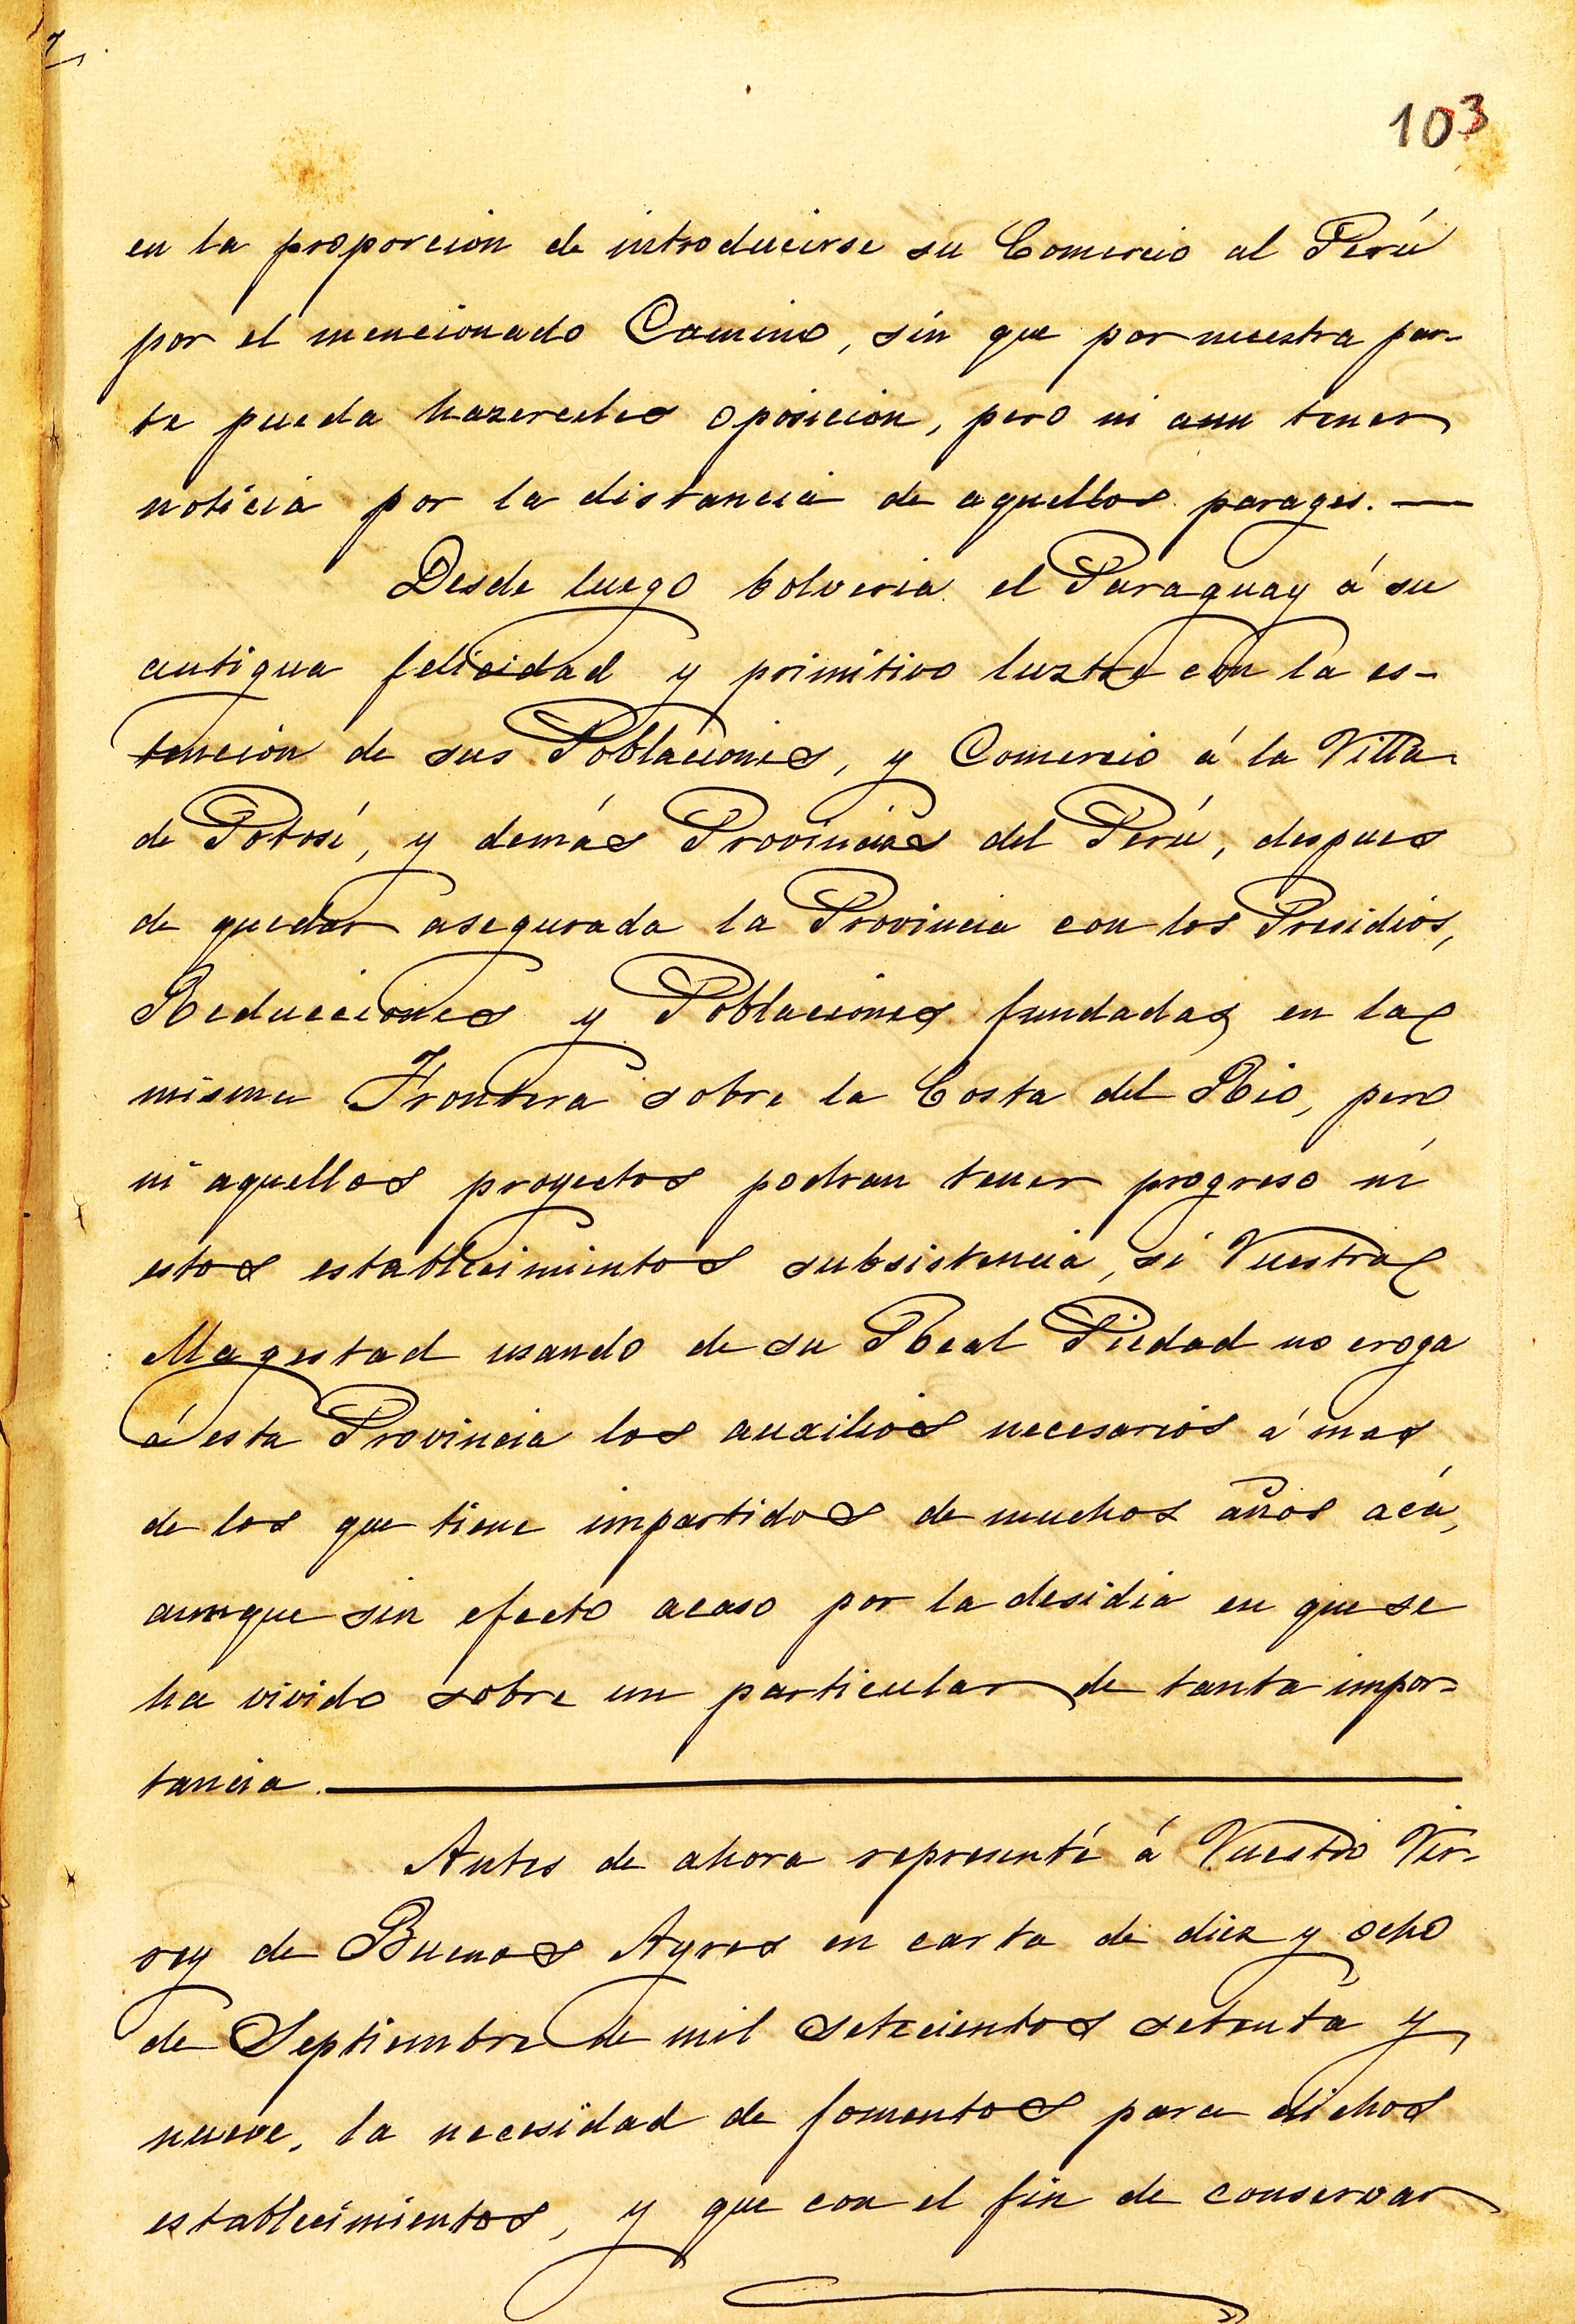 103
en la proporcion de introducirse su Comercio al Perú
por el mencionado Camino, sin que por nuestra par-
te pueda hazerceles oposicion, pero ni aun tener
noticia por la distancia de aquellos parages. —
Desde luego bolveria el Paraguay á su
antigua felicidad y primitivo luztre con la es-
tencion de sus Poblaciones, y Comercio á la Villa
de Potosí, y demás Provincias del Perú, despues
de quedar asegurada la Provincia con los Presidios,
Reducciones y Poblaciones fundadas en la
misma Frontera sobre la Costa del Rio, pero
ni aquellos proyectos podran tener progreso ni
estos establecimientos subsistencia, si Vuestra
Magestad usando de su Real Piedad no eroga
á esta Provincia los auxilios necesarios á mas
de los que tiene impartidos de muchos años acá,
aunque sin efecto acaso por la desidia en que se
ha vivido sobre un particular de tanta impor-
tancia.
Antes de ahora representé á Vuestro Vir-
rey de Buenos Ayres en carta de diez y ocho
de Septiembre de mil setecientos setenta y
nueve, la necesidad de fomentos para dichos
establecimientos, y que con el fin de conservar